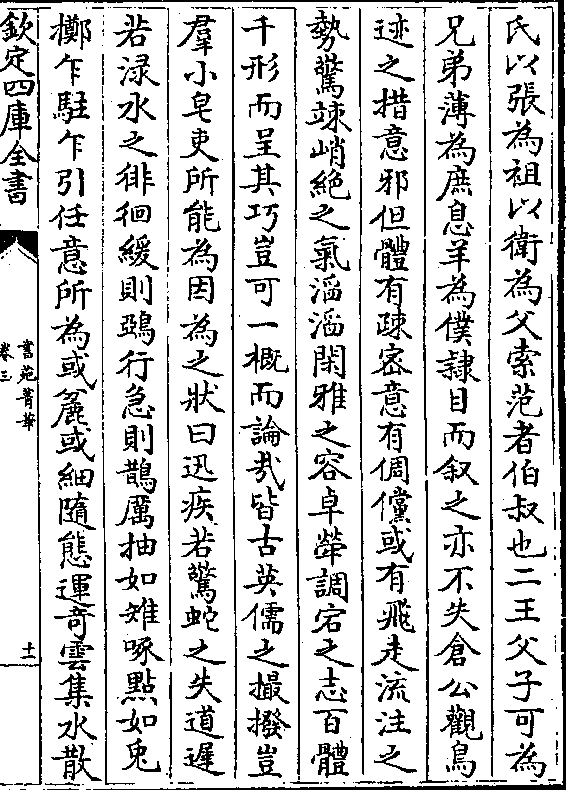 氏以張為祖以衛為父索范者伯叔也二王父子可為
兄弟薄為庶息羊為僕隷目而叙之亦不失倉公觀鳥
迹之措意邪但體有疎宻意有倜儻或有飛走流注之
勢驚竦峭絶之氣滔滔閑雅之容卓犖調宕之志百體
千形而呈其巧豈可一概而論㢤皆古英儒之撮撥豈
羣小皂吏所能為因為之狀曰迅疾若驚蛇之失道遲
若渌水之徘徊緩則鵶行急則鵲厲抽如雉啄㸃如兎
擲乍駐乍引任意所為或麄或細隨態運竒雲集水散
欽定四庫全書
書苑菁華
卷三
十